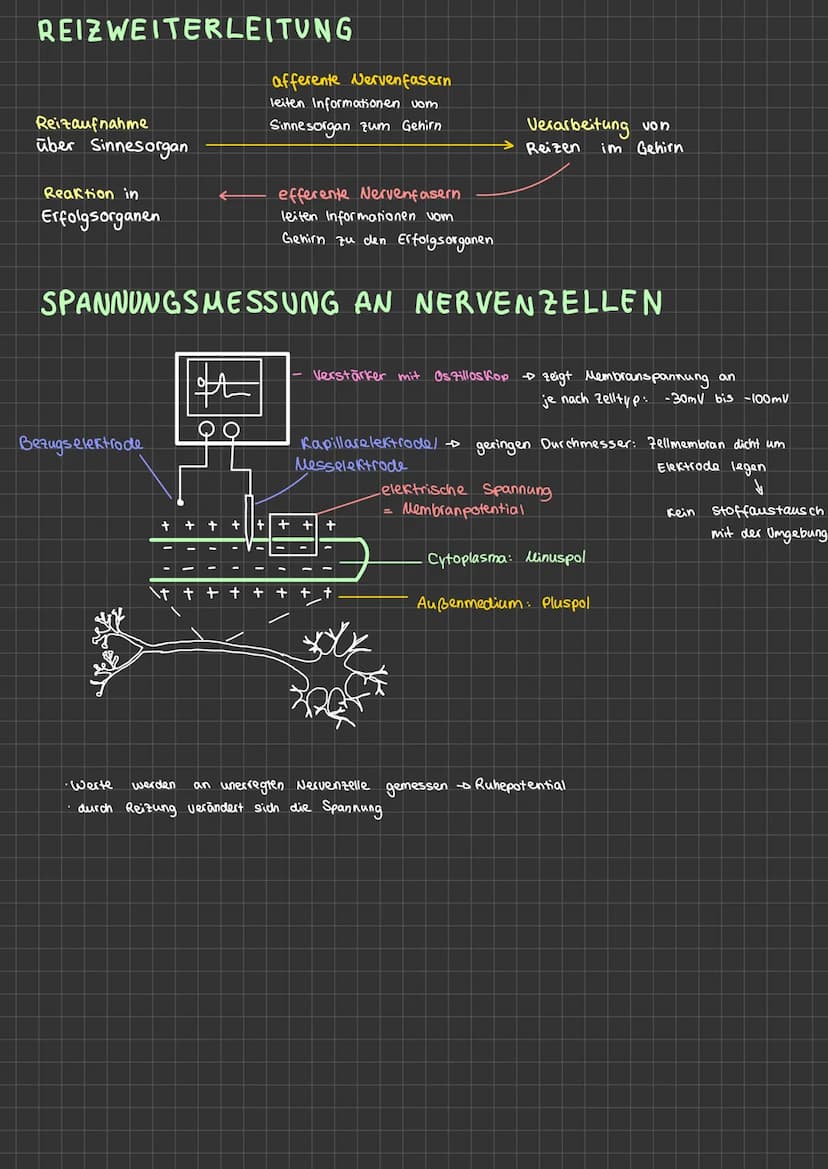 REIZWEITERLEITUNG
afferente Nervenfasern
leiten Informationen vom
Sinnesorgan zum Gehirn
Reizaufnahme
über Sinnesorgan
Verarbeitung von
Reizen im Gehirn
Reaktion in
Erfolgsorganen
efferente Nervenfasern
leiten Informationen vom
Gehirn zu den Erfolgsorganen
SPANNUNGSMESSUNG AN NERVENZELLEN
0
- Verstärker mit Oszilloskop → zeigt Membranspannung an
je nach Zelltyp: -30mV bis -100mV
Bezugselektrode
Kapillarelektrode/ → geringen Durchmesser: Zellmembran dicht um
Messelektrode
Elektrode legen
↓
kein Stoffaustausch
mit der Umgebung
elektrische Spannung
= Membranpotential
+ + + + + + + +
- - - - - - - -
- - - - - - - -
+ + + + + + + +
Cytoplasma: Minuspol
Außenmedium: Pluspol
· Werte werden an unerregten Nervenzelle gemessen → Ruhepotential
· durch Reizung verändert sich die Spannung